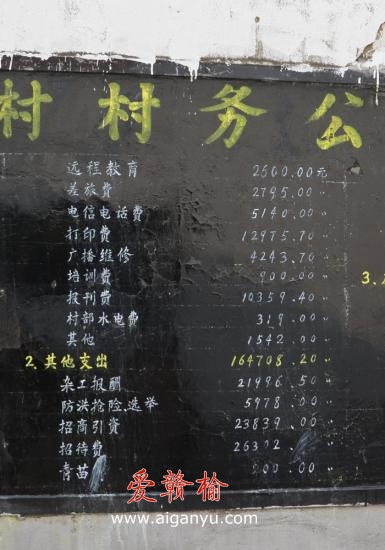 村村务公
远程教育 2600.00元
差旅费 2795.00〃
电信电话费 5140.00〃
打印费 12975.70〃
广播维修 4243.70〃
培训费 900.00〃
报刊费 10359.40〃
村部水电费 319.00〃
其他 1542.00〃
3.
2.其他支出 164708.20〃
杂工报酬 21996.50〃
防洪抢险,选举 5978.00〃
招商引资 23839.00〃
招待费
青苗
爱赣榆
www.aiganyu.com